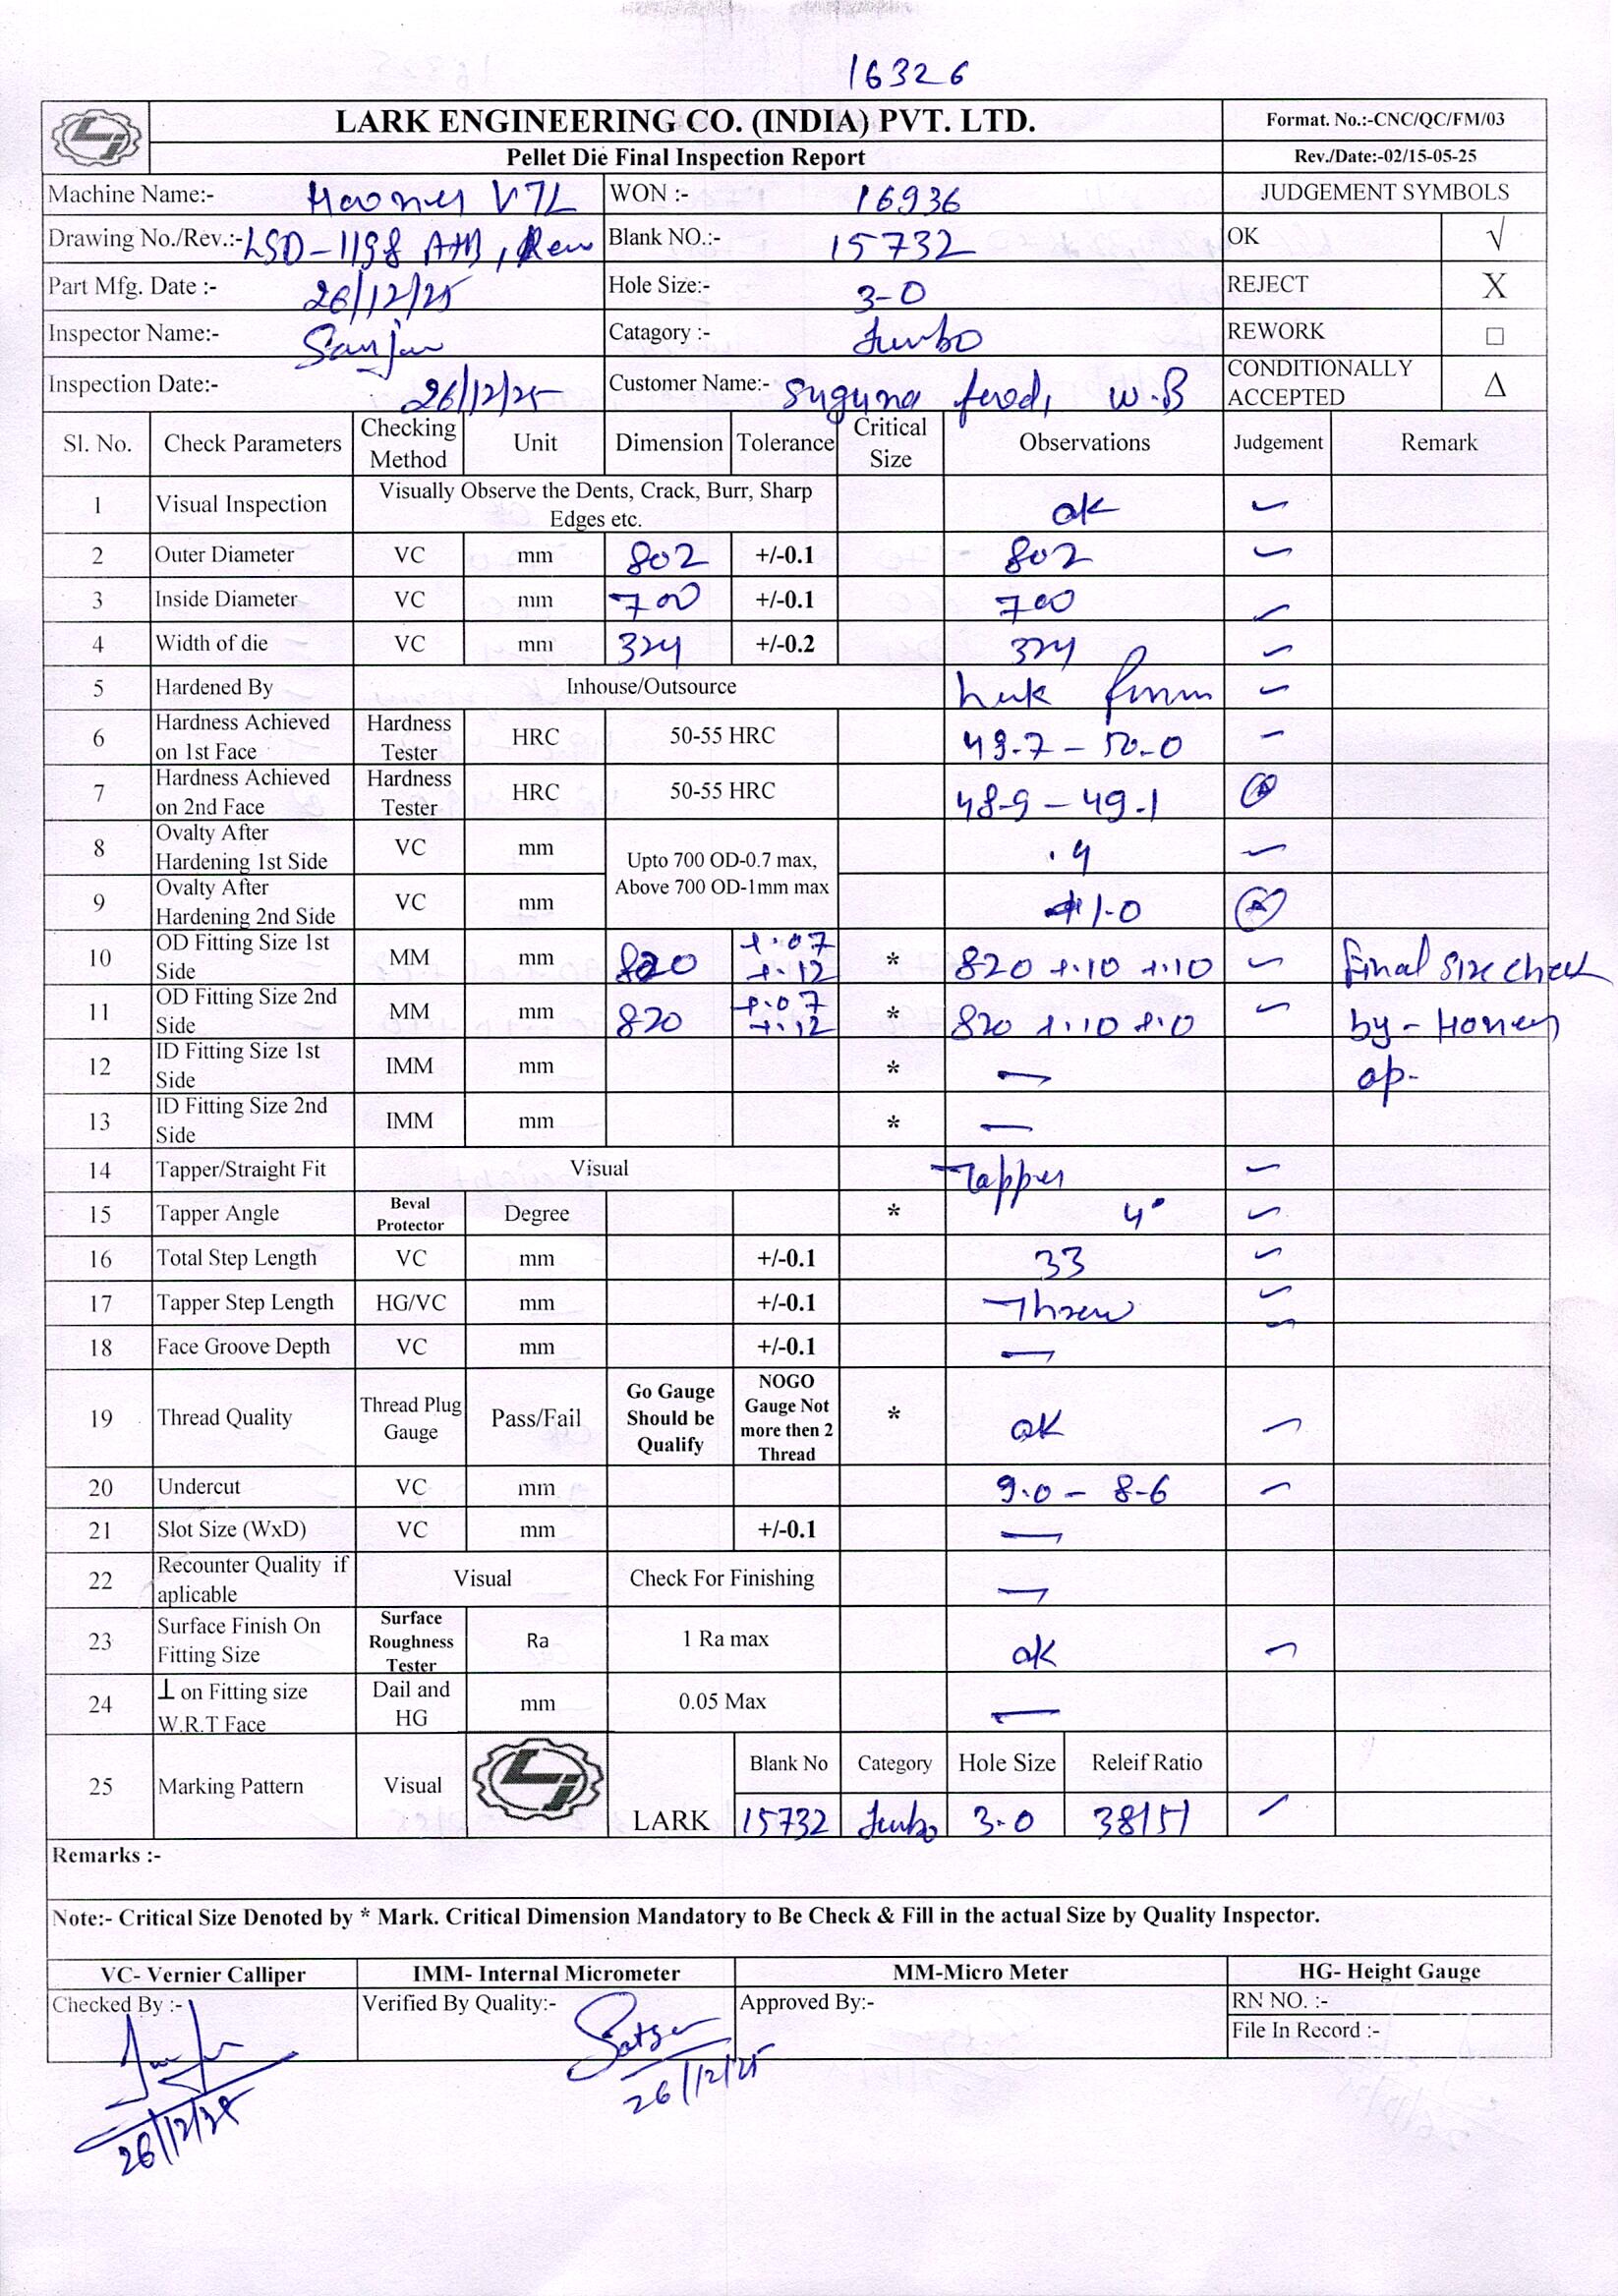 16326
LARK ENGINEERING CO. (INDIA) PVT. LTD.
Format. No.:-CNC/QC/FM/03
Pellet Die Final Inspection Report
Rev./Date:-02/15-05-25
Machine Name:- VTL WON :- 16936 JUDGEMENT SYMBOLS
Drawing No./Rev.:- LSD-1198 Blank NO.:- 15732 OK √
Part Mfg. Date :- 26/12/25 Hole Size:- 3-0 REJECT X
Inspector Name:- Sanju Catagory :- Jumbo REWORK □
Inspection Date:- 26/12/25 Customer Name:- Suguna W.B CONDITIONALLY ACCEPTED Δ
Sl. No. Check Parameters Checking Method Unit Dimension Tolerance Critical Size Observations Judgement Remark
1 Visual Inspection Visually Observe the Dents, Crack, Burr, Sharp Edges etc. ok ✓
2 Outer Diameter VC mm 802 +/-0.1 802 ✓
3 Inside Diameter VC mm 700 +/-0.1 700 ✓
4 Width of die VC mm 324 +/-0.2 324 ✓
5 Hardened By Inhouse/Outsource ✓
6 Hardness Achieved on 1st Face Hardness Tester HRC 50-55 HRC 49-7 - 50-0 ✓
7 Hardness Achieved on 2nd Face Hardness Tester HRC 50-55 HRC 48-9 - 49-1 Δ
8 Ovalty After Hardening 1st Side VC mm Upto 700 OD-0.7 max, Above 700 OD-1mm max .4 ✓
9 Ovalty After Hardening 2nd Side VC mm 1.0 Δ
10 OD Fitting Size 1st Side MM mm 820 +.07 +.12 * 820 +.10 +.10 ✓ Final size check
11 OD Fitting Size 2nd Side MM mm 820 +.07 +.12 * 820 +.10 ✓ by-
12 ID Fitting Size 1st Side IMM mm * — op-
13 ID Fitting Size 2nd Side IMM mm * —
14 Tapper/Straight Fit Visual Tapper ✓
15 Tapper Angle Beval Protector Degree * 4° ✓
16 Total Step Length VC mm +/-0.1 33 ✓
17 Tapper Step Length HG/VC mm +/-0.1 ✓
18 Face Groove Depth VC mm +/-0.1 — ✓
19 Thread Quality Thread Plug Gauge Pass/Fail Go Gauge Should be Qualify NOGO Gauge Not more then 2 Thread * ok ✓
20 Undercut VC mm 9.0 - 8-6 ✓
21 Slot Size (WxD) VC mm +/-0.1 —
22 Recounter Quality if aplicable Visual Check For Finishing —
23 Surface Finish On Fitting Size Surface Roughness Tester Ra 1 Ra max ok ✓
24 ⊥ on Fitting size W.R.T Face Dail and HG mm 0.05 Max —
25 Marking Pattern Visual LARK Blank No Category Hole Size Releif Ratio
15732 Jumbo 3-0 38/51 ✓
Remarks :-
Note:- Critical Size Denoted by * Mark. Critical Dimension Mandatory to Be Check & Fill in the actual Size by Quality Inspector.
VC- Vernier Calliper IMM- Internal Micrometer MM-Micro Meter HG- Height Gauge
Checked By :- Verified By Quality:- Approved By:- RN NO. :-
File In Record :-
26/12/25
26/12/25